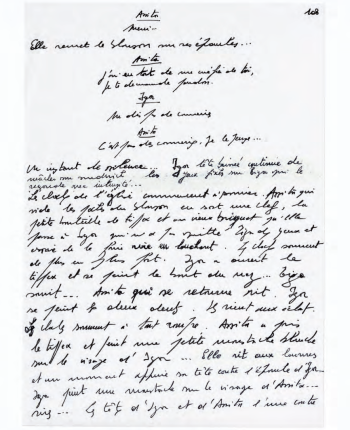 108
Assita
Merci...
Elle remet le blouson sur ses épaules...
Assita
J'ai eu tort de me méfier de toi,
je te demande pardon.
Igor
Ne dis pas de conneries
Assita
C'est pas des conneries, je le pense...
Un instant de silence... Igor tête baissée continue de
les yeux fixés sur Igor qui le
regarde
Les clochers de l'église commencent à sonner. Assita qui
vide les poches du blouson en sort une clef, la
petite bouteille de tipex et un vieux briquet qu'elle
passe à Igor qui
de le faire rire en louchant. sonnent
de plus en plus fort. Igor a ouvert le
tipex et se peint le bout du nez... Igor
sourit... Assita qui se retourne rit. Igor
se peint les deux Ils rient aux éclats.
sonnent à tout rompre. Assita a pris
le tipex et peint une petite moustache blanche
sur le visage d'Igor ... Elle rit aux larmes
et un moment appuie sa tête contre l'épaule d'Igor
Igor peint une moustache sur le visage d'Assita...
rires... les têtes d'Igor et d'Assita l'une contre